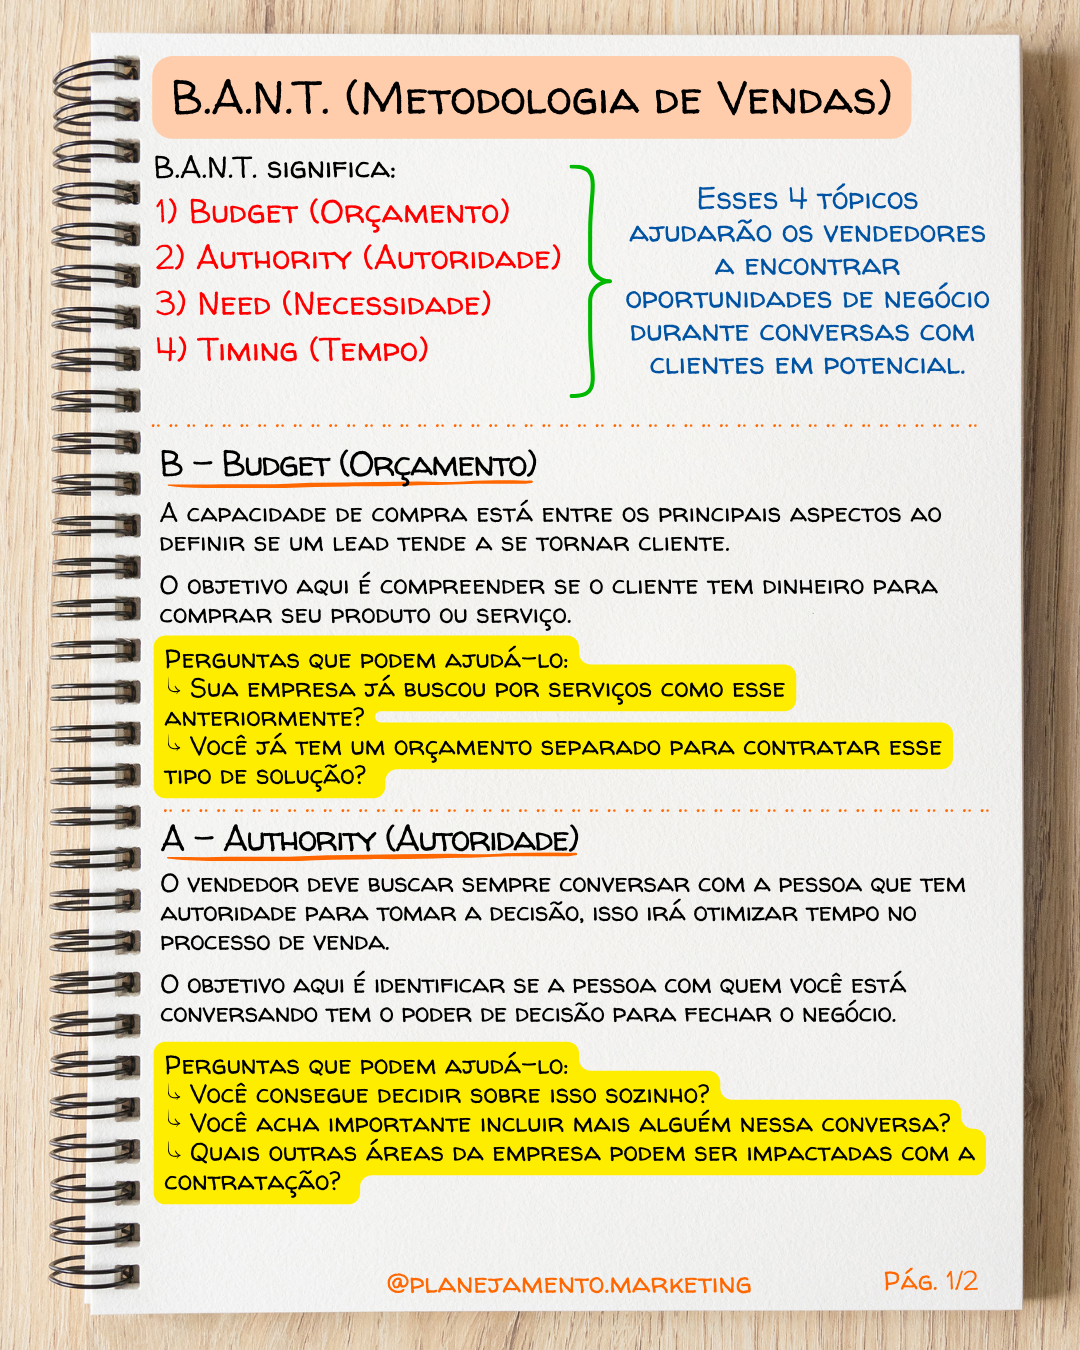 B.A.N.T. (Metodologia de Vendas)
B.A.N.T. significa:
1) Budget (Orçamento)
2) Authority (Autoridade)
3) Need (Necessidade)
4) Timing (Tempo)
Esses 4 tópicos
ajudarão os vendedores
a encontrar
oportunidades de negócio
durante conversas com
clientes em potencial.
B – Budget (Orçamento)
A capacidade de compra está entre os principais aspectos ao
definir se um lead tende a se tornar cliente.
O objetivo aqui é compreender se o cliente tem dinheiro para
comprar seu produto ou serviço.
Perguntas que podem ajudá-lo:
↳ Sua empresa já buscou por serviços como esse
anteriormente?
↳ Você já tem um orçamento separado para contratar esse
tipo de solução?
A – Authority (Autoridade)
O vendedor deve buscar sempre conversar com a pessoa que tem
autoridade para tomar a decisão, isso irá otimizar tempo no
processo de venda.
O objetivo aqui é identificar se a pessoa com quem você está
conversando tem o poder de decisão para fechar o negócio.
Perguntas que podem ajudá-lo:
↳ Você consegue decidir sobre isso sozinho?
↳ Você acha importante incluir mais alguém nessa conversa?
↳ Quais outras áreas da empresa podem ser impactadas com a
contratação?
@planejamento.marketing
Pág. 1/2